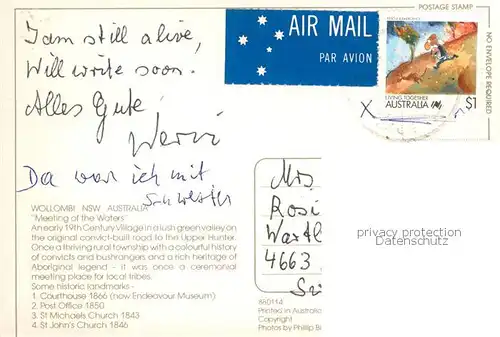 I am still alive,
Will write soon.
Alles Gute!
Da war ich mit
Schwester
WOLLOMBI NSW AUSTRALIA
"Meeting of the Waters"
An early 19th Century Village in a lush green valley on
the original convict-built road to the Upper Hunter.
Once a thriving rural township with a colourful history
of convicts and bushrangers and a rich heritage of
Aboriginal legend - it was once a ceremonial
meeting place for local tribes.
Some historic landmarks -
1. Courthouse 1866 (now Endeavour Museum)
2. Post Office 1850
3. St Michaels Church 1843
4. St John's Church 1846
AIR MAIL
PAR AVION
POSTAGE STAMP
NO ENVELOPE REQUIRED
LIVING TOGETHER
AUSTRALIA $1
X
Mrs
Rosi
4663
privacy protection
Datenschutz
880114
Printed in Australia
Copyright
Photos by Phillip